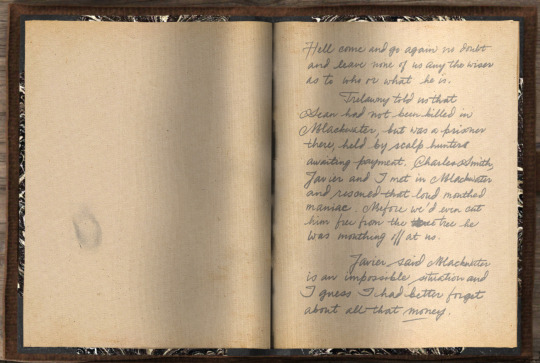 Hell come and go again no doubt
and leave none of us any the wiser
as to who or what he is.
Trelawny told us that
Sean had not been killed in
Blackwater, but was a prisoner
there, held by scalp hunters
awaiting payment. Charles Smith,
Javier and I met in Blackwater
and rescued that loud mouthed
maniac. Before we'd even cut
him free from the tree he
was mouthing off at us.
Javier said Blackwater
is an impossible situation and
I guess I had better forget
about all that money.